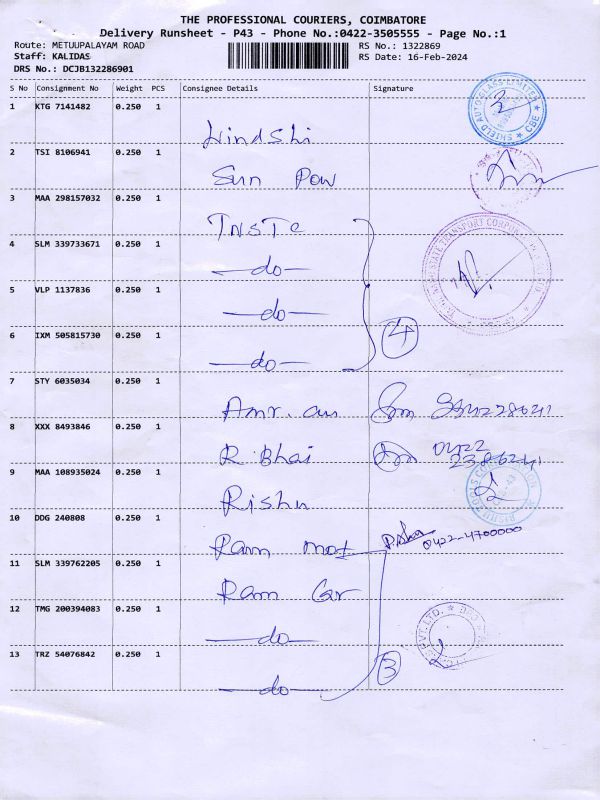 THE PROFESSIONAL COURIERS, COIMBATORE
Delivery Runsheet - P43 - Phone No.:0422-3505555 - Page No.:1
Route: METUUPALAYAM ROAD RS No.: 1322869
Staff: KALIDAS RS Date: 16-Feb-2024
DRS No.: DCJB132286901
S No Consignment No Weight PCS Consignee Details Signature
1 KTG 7141482 0.250 1
Windshi
2 TSI 8106941 0.250 1
Sun Pow
3 MAA 298157032 0.250 1
TNSTC
4 SLM 339733671 0.250 1
—do—
5 VLP 1137836 0.250 1
—do—
6 IXM 505815730 0.250 1
—do— 4
7 STY 6035034 0.250 1
Amr.
8 XXX 8493846 0.250 1
R. Bhai 0422
9 MAA 108935024 0.250 1
Rishu
10 DDG 240808 0.250 1
Ram mot 0422-4700000
11 SLM 339762205 0.250 1
Ram Car
12 TMG 200394083 0.250 1
—do—
13 TRZ 54076842 0.250 1
—do— 3